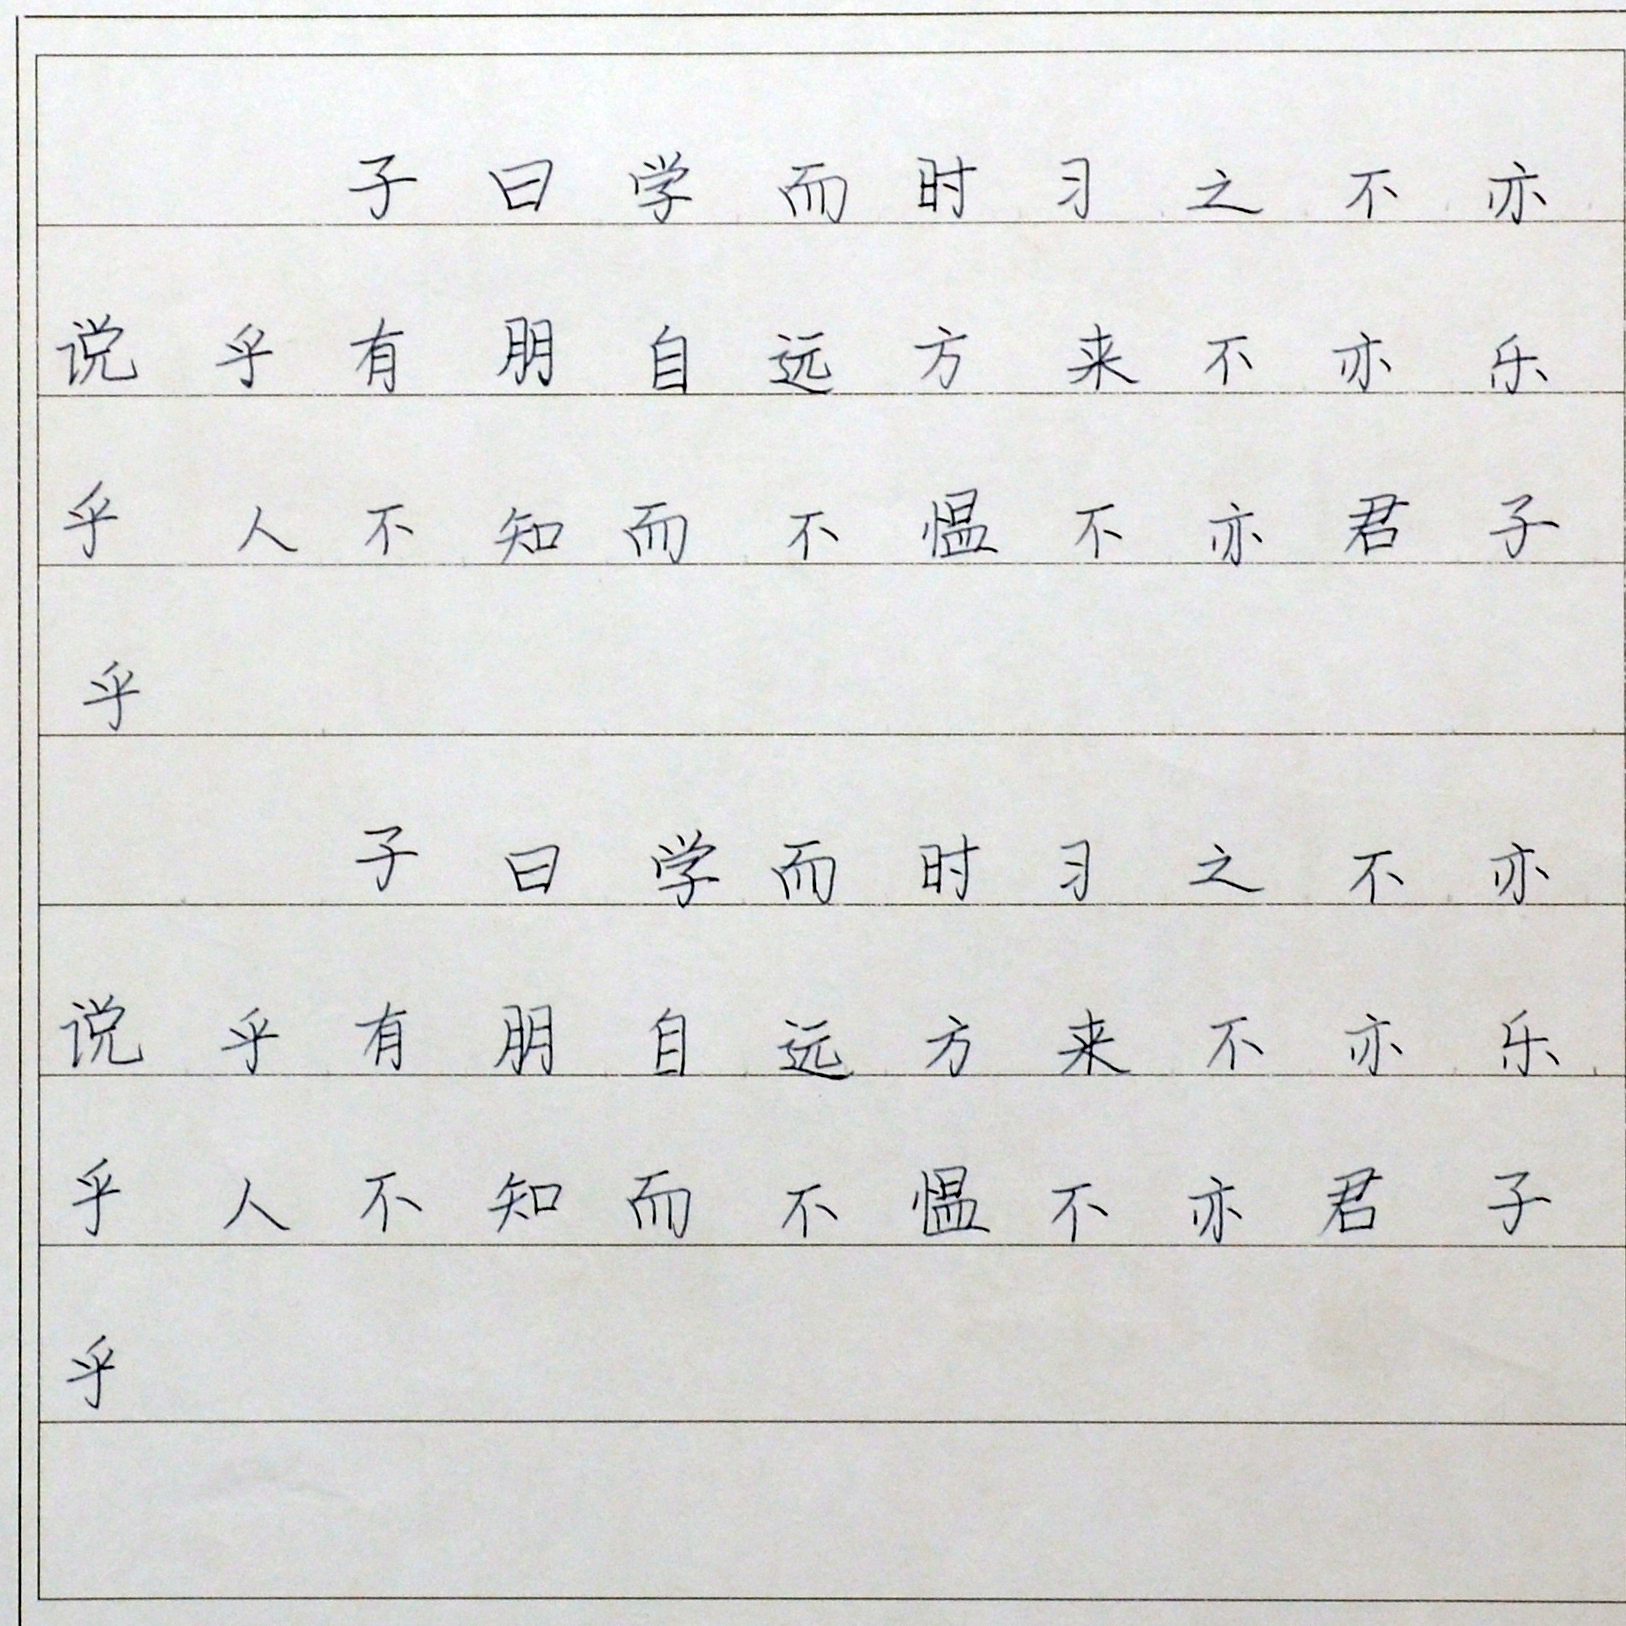 子曰学而时习之不亦
说乎有朋自远方来不亦乐
乎人不知而不愠不亦君子
乎
子曰学而时习之不亦
说乎有朋自远方来不亦乐
乎人不知而不愠不亦君子
乎